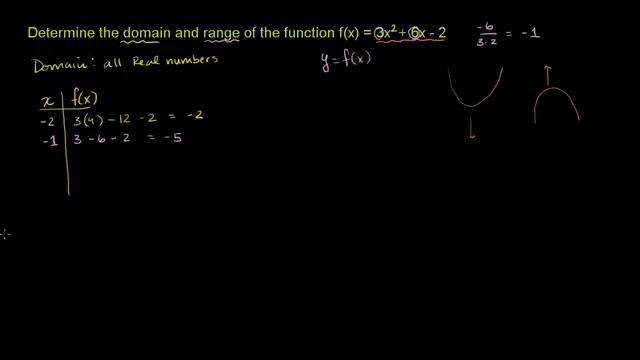 Determine the domain and range of the function f(x) = 3x² + 6x - 2
-6
3·2
= -1
Domain: all Real numbers
y = f(x)
x f(x)
-2 3(4) - 12 - 2 = -2
-1 3 - 6 - 2 = -5